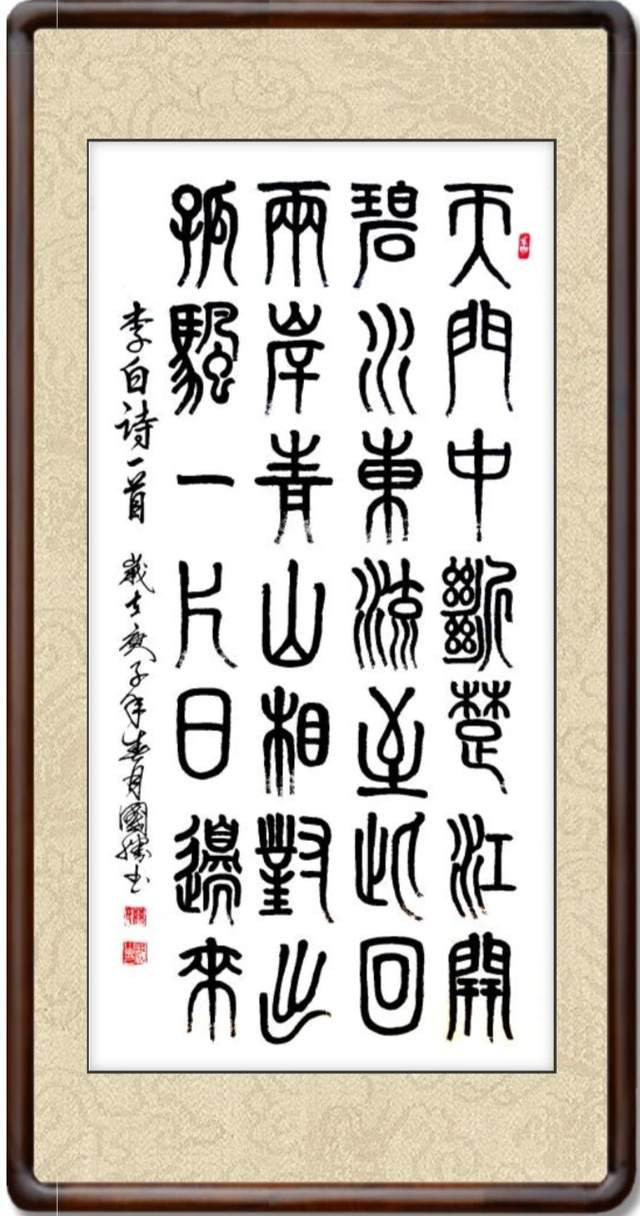 天門中斷楚江開
碧水東流至此回
兩岸青山相對出
孤颿一片日邊來
李白诗一首 歲在庚子年春月國勝书